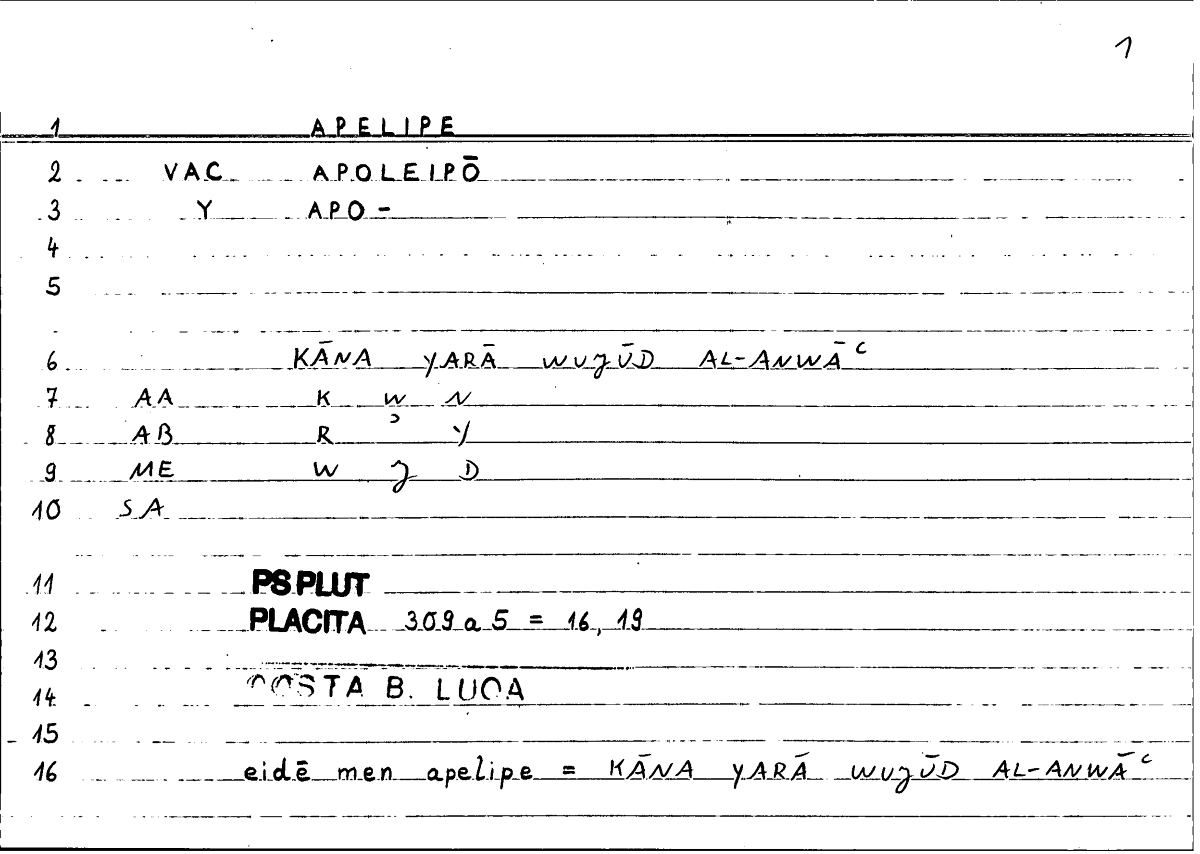 1
1 APELIPE
2 VAC APOLEIPŌ
3 Y APO-
4
5
6 KĀNA YARĀ WUJŪD AL-ANWĀʿ
7 AA K W N
8 AB R ʾ Y
9 ME W J D
10 SA
11 PS PLUT
12 PLACITA 309 a 5 = 16, 19
13
14 QOSTA B. LUQA
15
16 eidē men apelipe = KĀNA YARĀ WUJŪD AL-ANWĀʿ